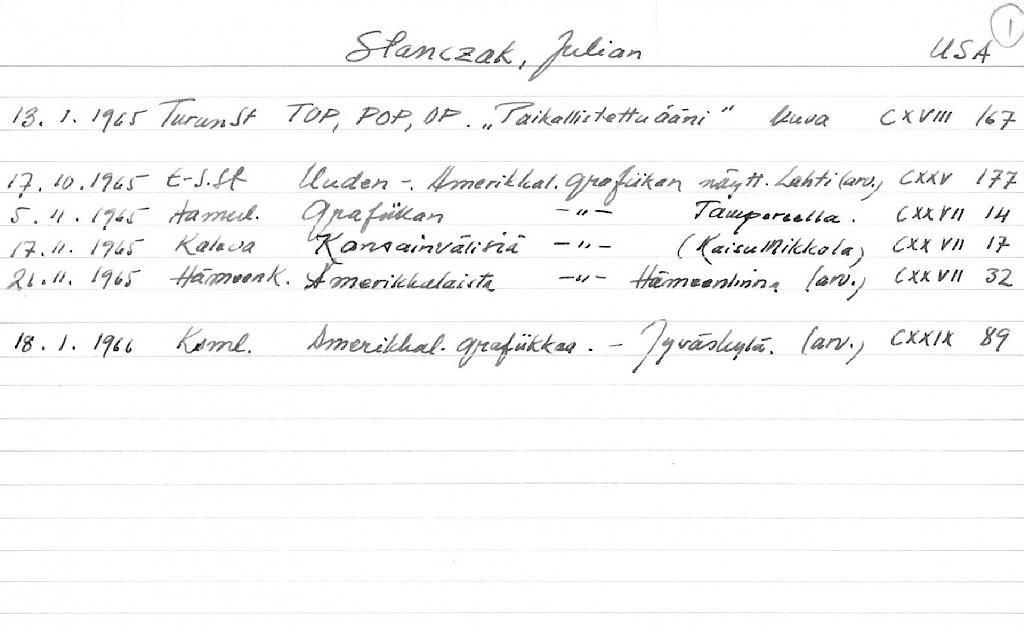 Stanczak, Julian USA 1
13.1.1965 TurunSt TOP, POP, OP. „Paikallistettu ääni” kuva CXVIII 167
17.10.1965 E-S.St Uuden -. Amerikkal. grafiikan näytt. Lahti (arv.) CXXV 177
5.11.1965 Aamul. Grafiikan -"- Tampereella. CXXVII 14
17.11.1965 Kaleva Kansainvälisiä -"- (Kaisu Mikkola) CXXVII 17
21.11.1965 Hämeenk. Amerikkalaista -"- Hämeenlinna (arv.) CXXVII 32
18.1.1966 Ksml. Amerikkal. grafiikkaa. - Jyväskylä. (arv.) CXXIX 89